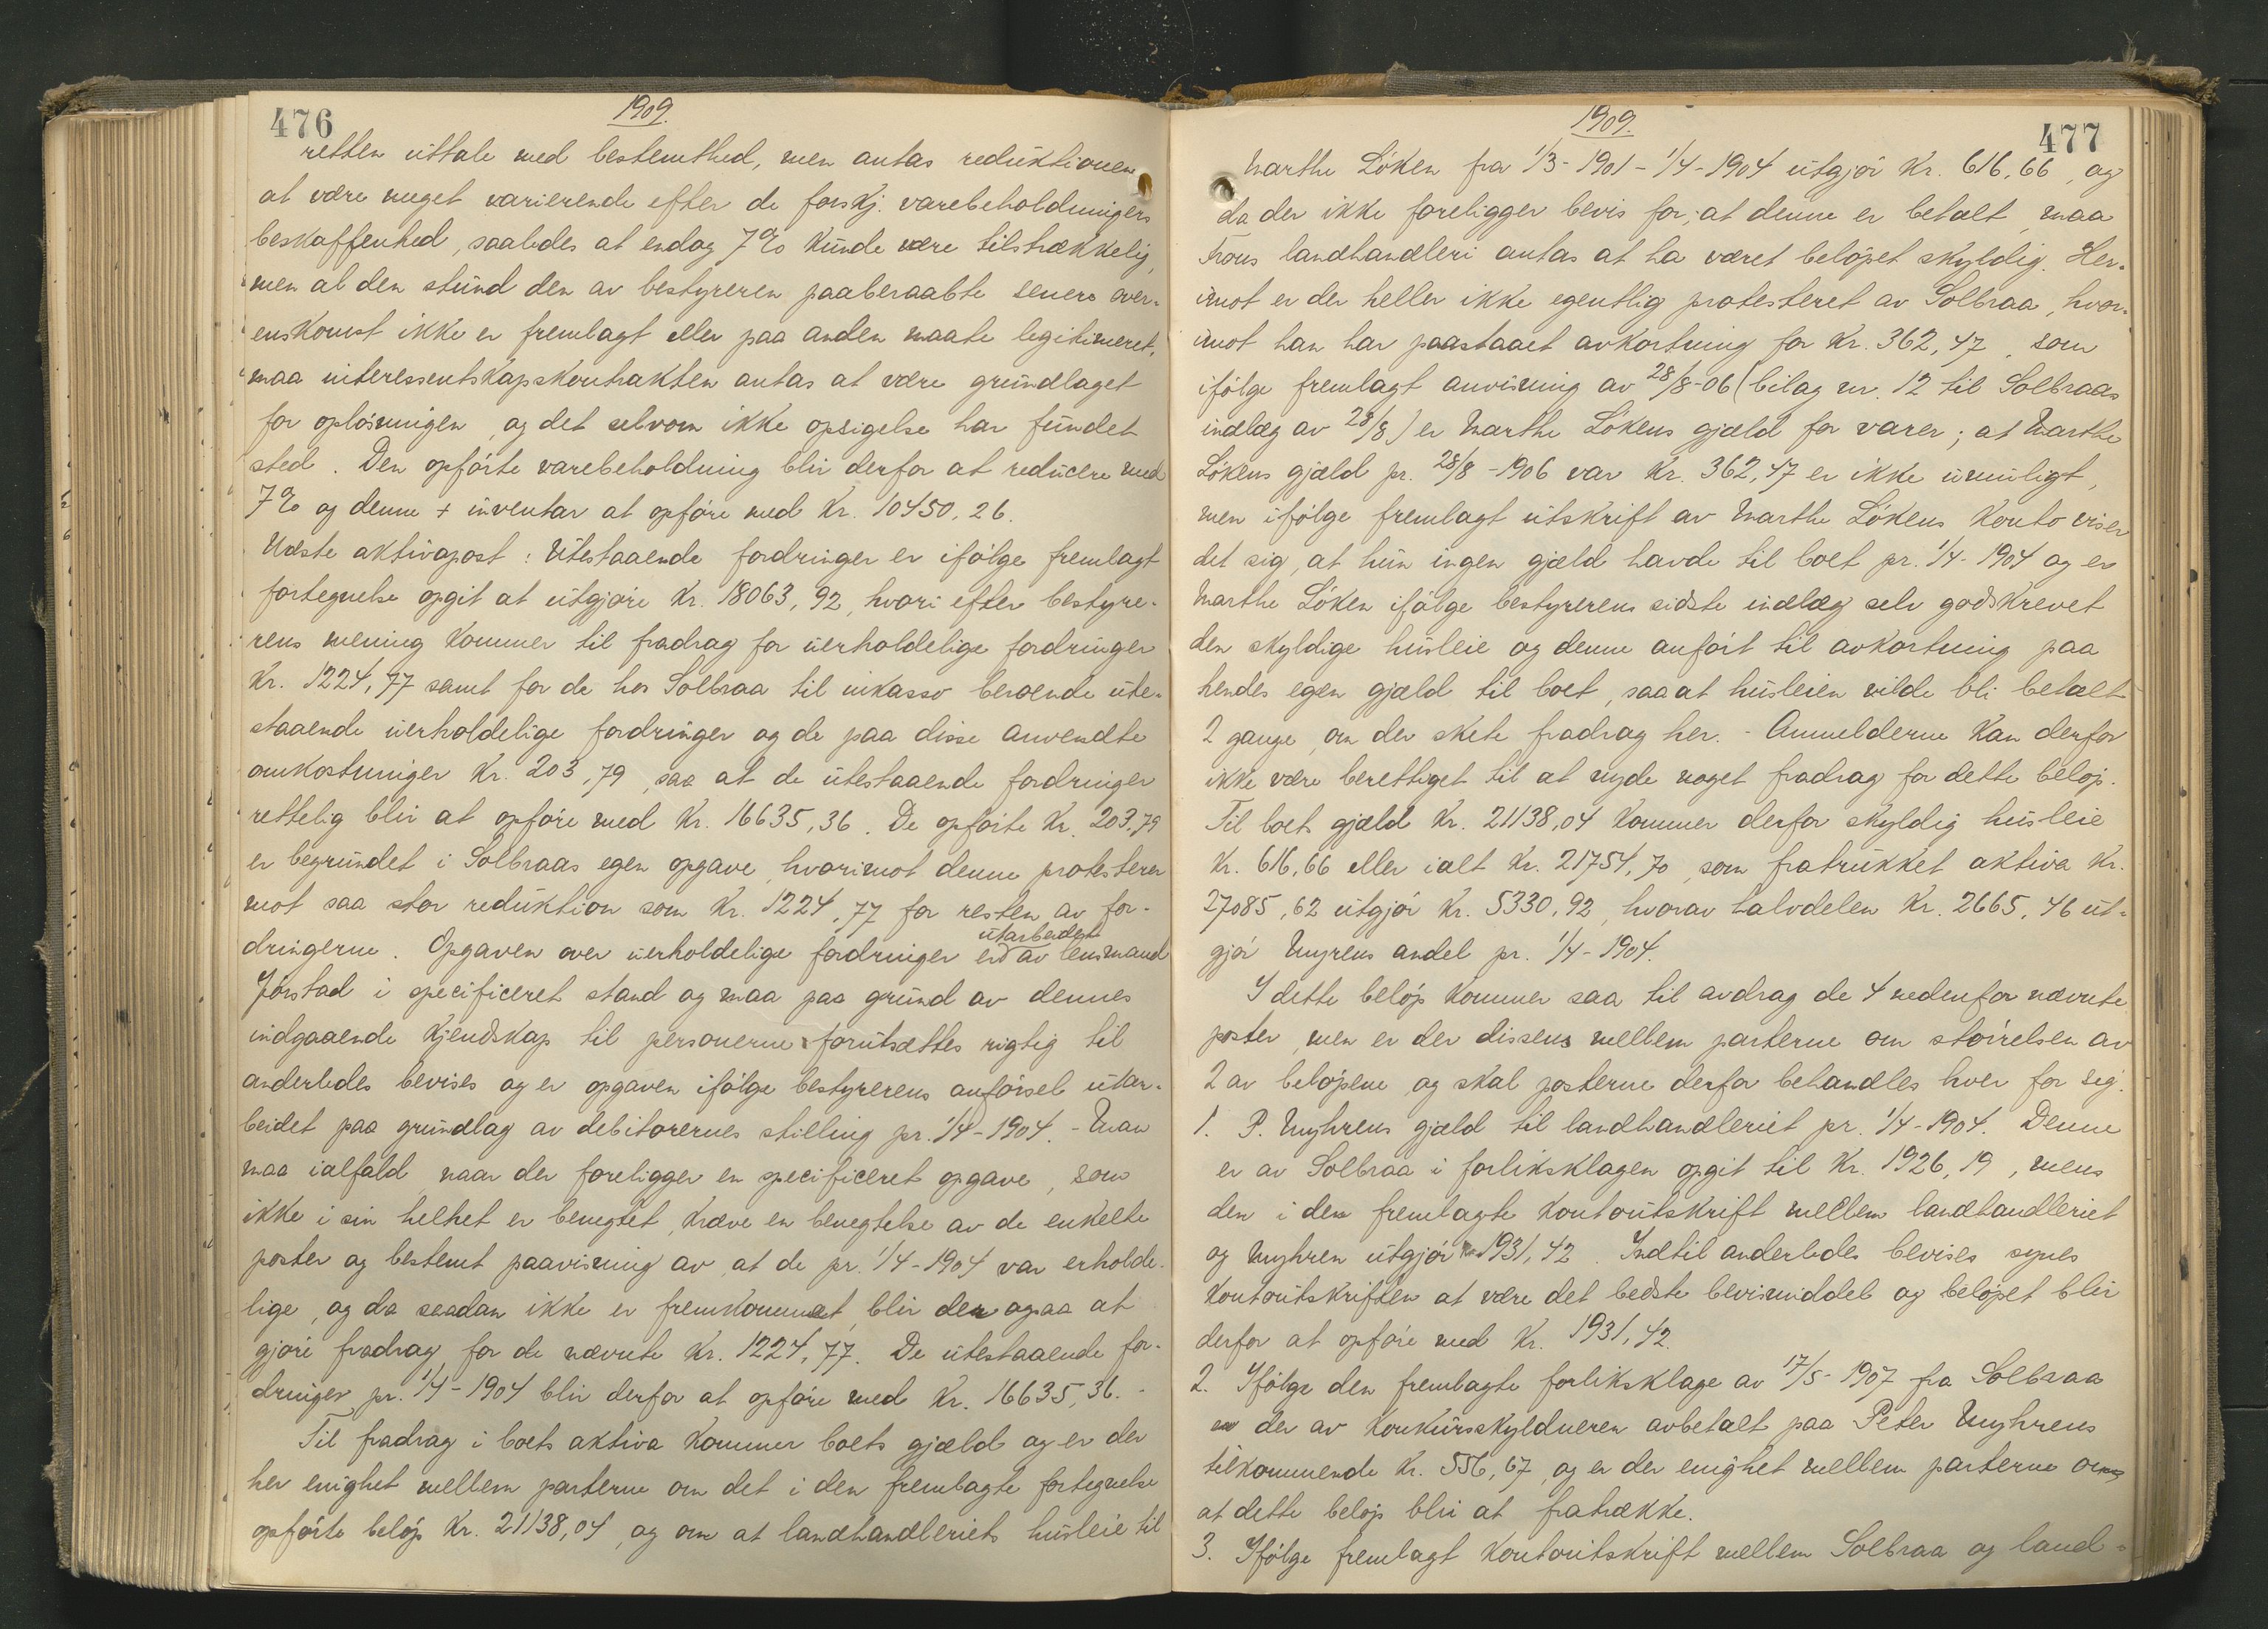 476
1909.
retten uttale med bestemthed, men antas reduktionen
at være meget varierende efter de forskj. varebeholdningers
beskaffenhed, saaledes at endog 7% kunde være tilstrækkelig,
men al den stund den av bestyreren paaberaabte senere over-
enskomst ikke er fremlagt eller paa anden maate legitimeret,
maa interessentskapskontrakten antas at være grundlaget
for opløsningen, og det selvom ikke opsigelse har fundet
sted. Den opførte varebeholdning blir derfor at reducere med
7% og denne + inventar at opføre med Kr. 10450,26.
Næste aktivapost: Utestaaende fordringer er ifølge fremlagt
fortegnelse opgit at utgjøre Kr. 18063,92, hvori efter bestyre-
rens mening kommer til fradrag for uerholdelige fordringer
Kr. 1224,77 samt for de hos Solbraa til inkasso beroende ute-
staaende uerholdelige fordringer og de paa disse anvendte
omkostninger Kr. 203,79, saa at de utestaaende fordringer
rettelig blir at opføre med Kr. 16635,36. De opførte Kr. 203,79
er begrundet i Solbraas egen opgave, hvorimot denne protesterer
mot saa stor reduktion som Kr. 1224,77 for resten av for-
dringerne. Opgaven over uerholdelige fordringer er utarbeidet av lensmand
Jørstad i specificeret stand og maa paa grund av dennes
indgaaende kjendskap til personerne forutsættes rigtig til
anderledes bevises og er opgaven ifølge bestyrerens anførsel utar-
beidet paa grundlag av debitorernes stilling pr. 1/4-1904. - Man
maa ialfald, naar der foreligger en specificeret opgave, som
ikke i sin helhet er benegtet, kræve en benegtelse av de enkelte
poster og bestemt paavisning av, at de pr. 1/4-1904 var erholde-
lige, og da saadan ikke er fremkommet, blir den ogsaa at
gjøre fradrag for de nævnte Kr. 1224,77. De utestaaende for-
dringer pr. 1/4-1904 blir derfor at opføre med Kr. 16635,36. -
Til fradrag i boets aktiva kommer boets gjæld og er der
her enighet mellem parterne om det i den fremlagte fortegnelse
opførte beløp Kr. 21138,04, og om at landhandleriets husleie til
477
1909.
Marthe Løken fra 1/3-1901 - 1/4-1904 utgjør Kr. 616,66, og
da der ikke foreligger bevis for, at denne er betalt, maa
Frons landhandleri antas at ha været beløpet skyldig. Her-
imot er der heller ikke egentlig protesteret av Solbraa, hvor-
imot han har paastaaet avkortning for Kr. 362,47, som
ifølge fremlagt anvisning av 28/8-06 (bilag nr. 12 til Solbraas
indlæg av 28/8) er Marthe Løkens gjæld for varer; at Marthe
Løkens gjæld pr. 28/8-1906 var Kr. 362,47 er ikke umuligt,
men ifølge fremlagt utskrift av Marthe Løkens konto viser
det sig, at hun ingen gjæld havde til boet pr. 1/4-1904 og er
Marthe Løken ifølge bestyrerens sidste indlæg selv godskrevet
den skyldige husleie og denne anført til avkortning paa
hendes egen gjæld til boet, saa at husleien vilde bli betalt
2 gange, om der skete fradrag her. - Anmelderne kan derfor
ikke være berettiget til at nyde noget fradrag for dette beløp.
Til boets gjæld Kr. 21138,04 kommer derfor skyldig husleie
Kr. 616,66 eller ialt Kr. 21754,70, som fratrukket aktiva Kr.
27085,62 utgjør Kr. 5330,92, hvorav halvdelen Kr. 2665,46 ut-
gjør Myrens andel pr. 1/4-1904.
I dette beløp kommer saa til avdrag de 4 nedenfor nævnte
poster, men er der dissens mellem parterne om størrelsen av
2 av beløpene og skal posterne derfor behandles hver for sig.
1. P. Myhrens gjæld til landhandleriet pr. 1/4-1904. Denne
er av Solbraa i forliksklagen opgit til Kr. 1926,19, mens
den i den fremlagte kontoutskrift mellem landhandleriet
og Myhren utgjør Kr. 1931,42. Indtil anderledes bevises synes
kontoutskriften at være det bedste bevismiddel og beløpet blir
derfor at opføre med Kr. 1931,42.
2. Ifølge den fremlagte forliksklage av 17/5-1907 fra Solbraa
er der av konkursskyldneren avbetalt paa Peter Myhrens
tilkommende Kr. 556,67, og er der enighet mellem parterne om,
at dette beløp blir at fratrække.
3. Ifølge fremlagt kontoutskrift mellem Solbraa og land-